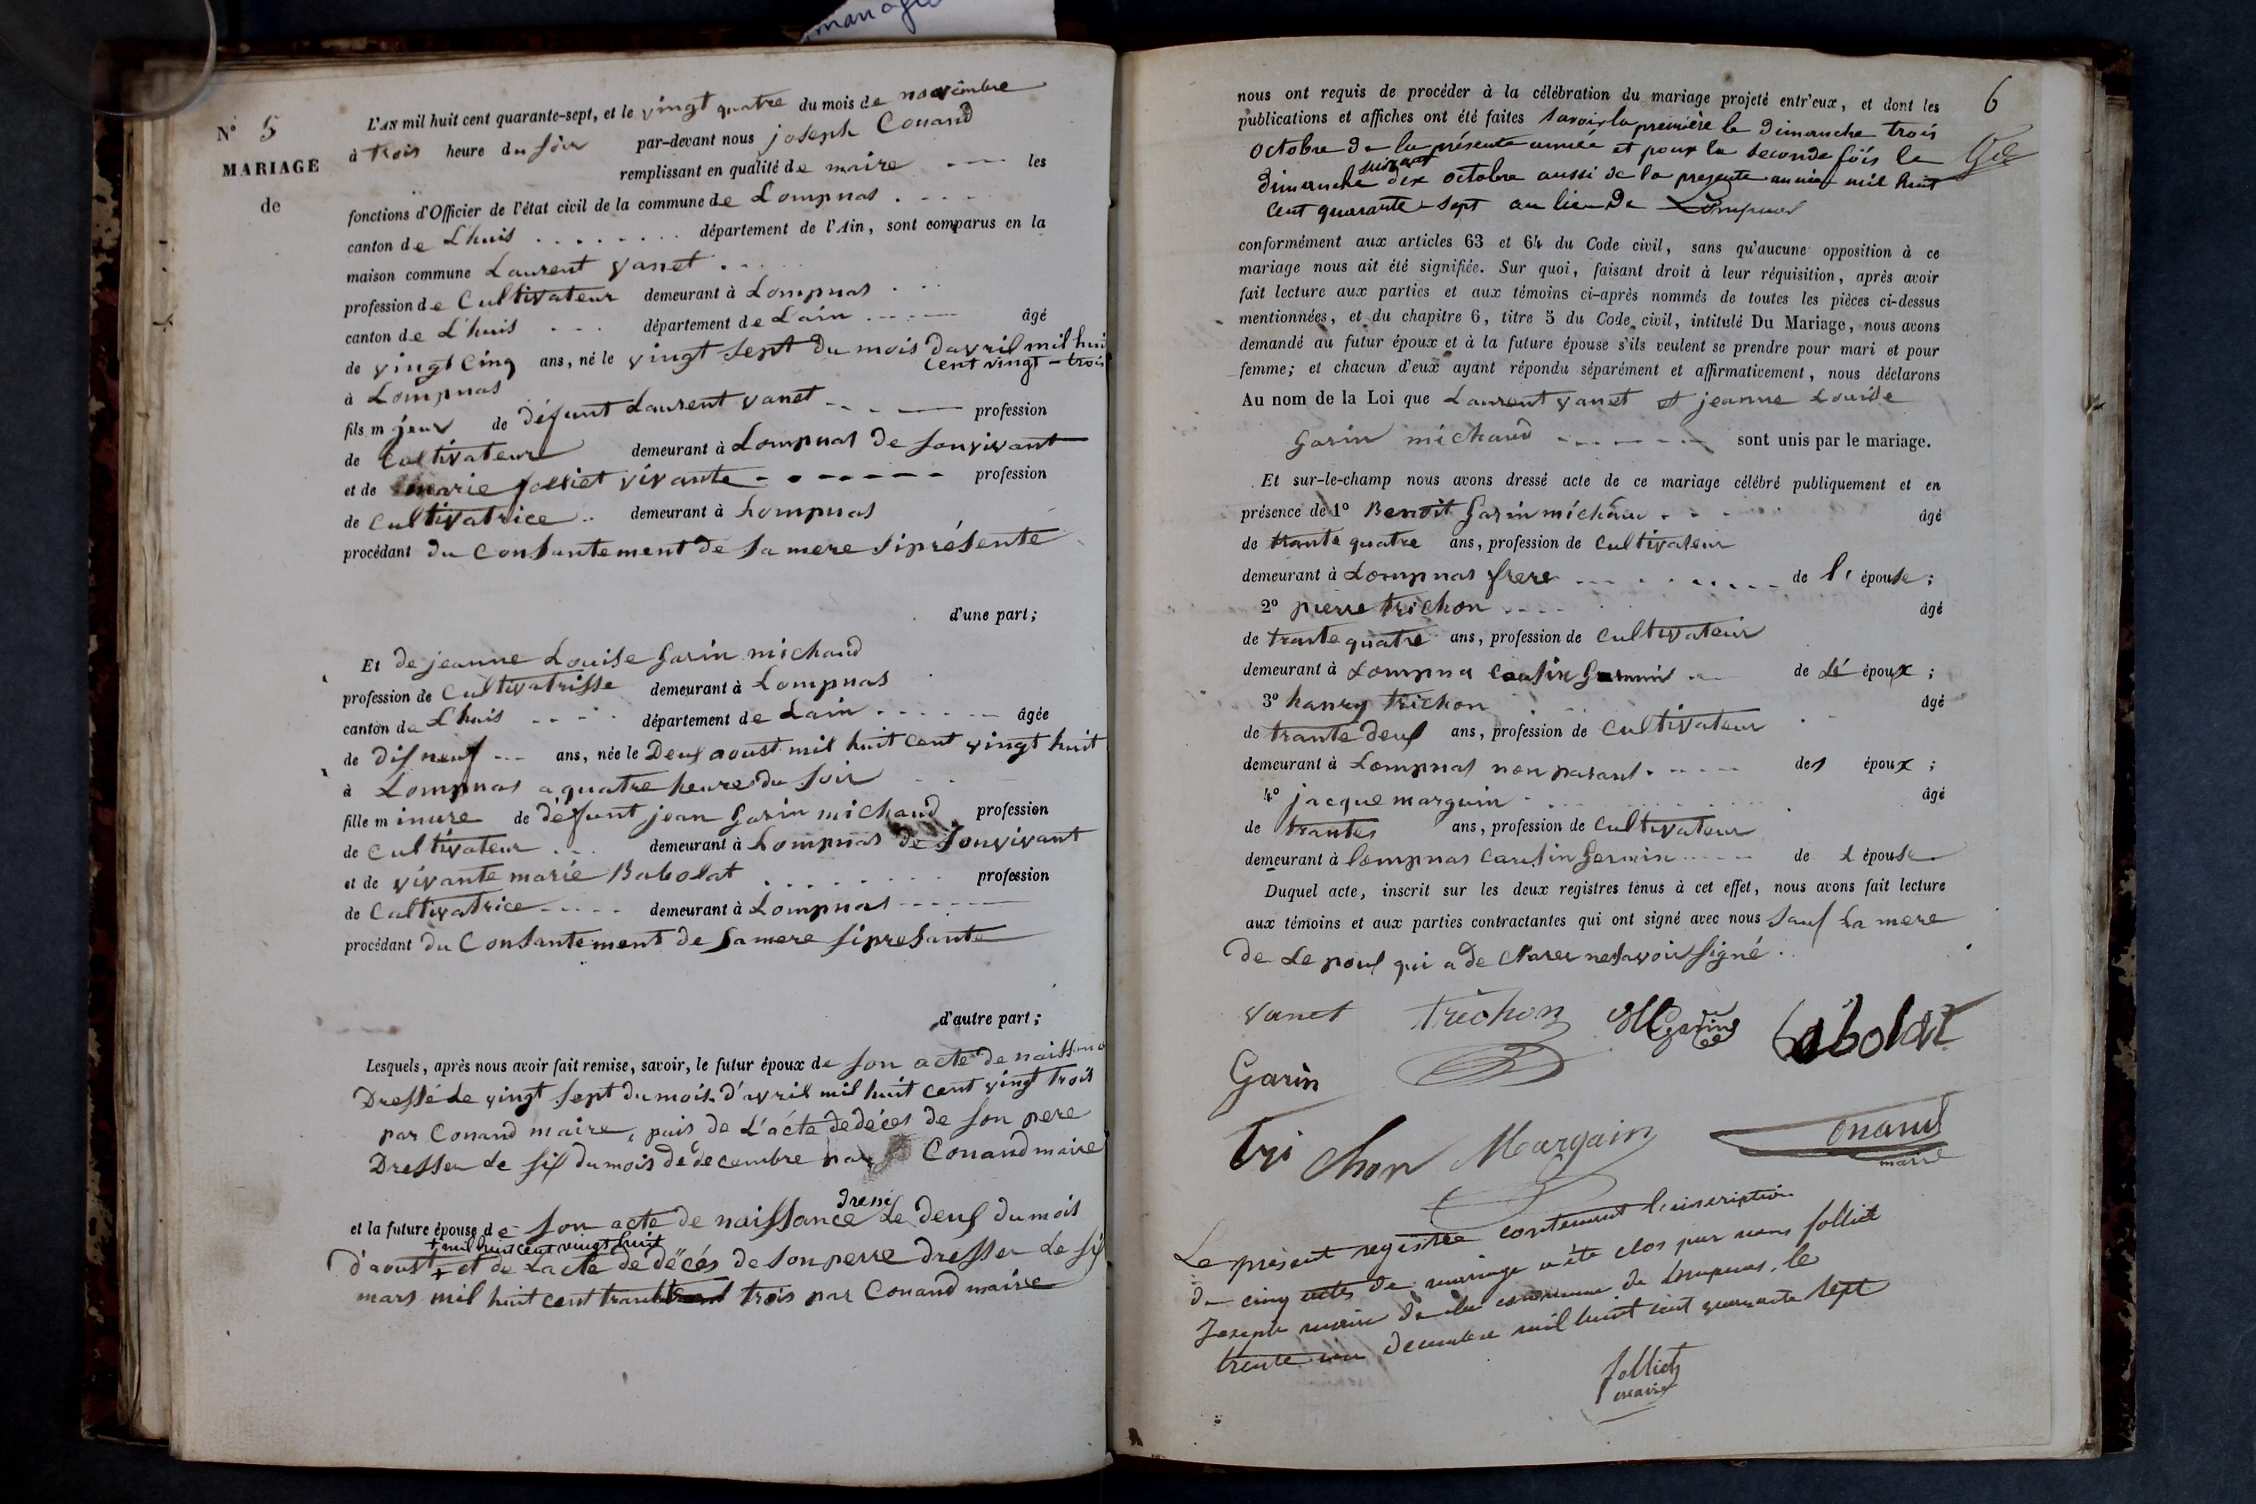 N° 5
MARIAGE
de
L'AN mil huit cent quarante-sept, et le vingt quatre du mois de novembre
à trois heure du soir par-devant nous joseph Conand
remplissant en qualité de maire les
fonctions d'Officier de l'état civil de la commune de Lompnas
canton de Lhuis département de l'Ain, sont comparus en la
maison commune Laurent vanet
profession de Cultivateur demeurant à Lompnas
canton de L'huis département de Lain âgé
de vingt Cinq ans, né le vingt sept du mois davril mil hui
cent vingt - trois
à Lompnas
fils m jeur de défunt Laurent vanet profession
de Cultivateur demeurant à Lompnas de sonvivant
et de marie jolliet vivante profession
de Cultivatrice demeurant à Lompnas
procédant du Consantement de sa mere siprésente
d'une part;
Et de jeanne Louise Garin michaud
profession de Cultivatrisse demeurant à Lompnas
canton de Lhuis département de Lain âgée
de disneuf ans, née le Deux aoust mil huit cent vingt huit
à Lompnas a quatre heure du soir
fille m inure de défunt jean Garin michaud profession
de Cultivateur demeurant à Lompnas de sonvivant
et de vivante marie Babolat profession
de Caltivatrice demeurant à Lompnas
procédant du Consantement de samere sipresante
d'autre part;
Lesquels, après nous avoir fait remise, savoir, le futur époux de son acte de naissanc
Dressé le vingt sept du mois d'avril mil huit cent vingt trois
par Conand maire, puis de L'acte dedéces de son pere
Dresser le six du mois de decembre par Conand maire
dressé
et la future épouse de son acte de naissance Le deux du mois
+ mil huit cent vingt huit
d'aoust + et de Lacte de décés de son perre dresser Le six
mars mil huit cent trante trois par Conand maire
6
nous ont requis de procéder à la célébration du mariage projeté entr'eux, et dont les
publications et affiches ont été faites savoir la première le dimanche trois
octobre de la présente année et pour la seconde fois le
suivant
dimanche dix octobre aussi de la presente année mil huit
cent quarante-sept au lieu de Lompnas
conformément aux articles 63 et 64 du Code civil, sans qu'aucune opposition à ce
mariage nous ait été signifiée. Sur quoi, faisant droit à leur réquisition, après avoir
fait lecture aux parties et aux témoins ci-après nommés de toutes les pièces ci-dessus
mentionnées, et du chapitre 6, titre 5 du Code civil, intitulé Du Mariage, nous avons
demandé au futur époux et à la future épouse s'ils veulent se prendre pour mari et pour
femme; et chacun d'eux ayant répondu séparément et affirmativement, nous déclarons
Au nom de la Loi que Laurent vanet et jeanne Louise
Garin michaud sont unis par le mariage.
Et sur-le-champ nous avons dressé acte de ce mariage célébré publiquement et en
présence de 1° Benoit Garin michaud âgé
de trante quatre ans, profession de Cultivateur
demeurant à Lompnas frere de l' épouse;
2° pierre trichon âgé
de trante quatre ans, profession de cultivateur
demeurant à Lompna Cousin Germin de Lé époux;
3° hanry trichon âgé
de trante deux ans, profession de Cultivateur
demeurant à Lompnas non parant des époux;
4° jacque marguin âgé
de trantes ans, profession de Cultivateur
demeurant à lompnas Cousin Germin de L épouse
Duquel acte, inscrit sur les deux registres tenus à cet effet, nous avons fait lecture
aux témoins et aux parties contractantes qui ont signé avec nous Sauf La mere
de Le poux qui a de Clarer nesavoir signé.
Vanet Trichon Garin babolat
Garin
Tri chon Margain Conand
maire
Le présent registre contenant l'inscription
de cinq actes de mariage a été clos par nous Jolliet
Joseph maire de la commune de Lompnas, le
trente un decembre mil huit cent quarante sept
Jolliet
maire